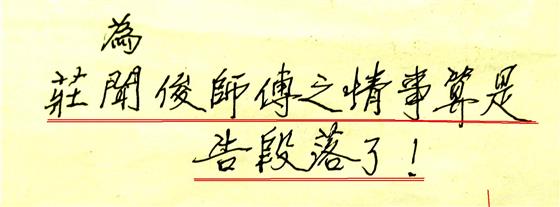 為
莊聞俊師傅之情事算是
告段落了！